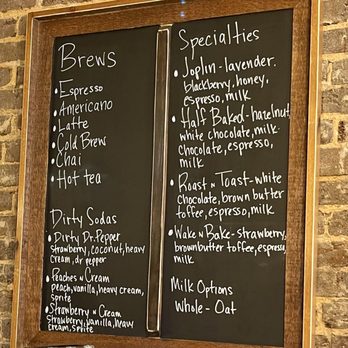 Brews
• Espresso
• Americano
• Latte
• Cold Brew
• Chai
• Hot tea
Dirty Sodas
• Dirty Dr. Pepper
strawberry, coconut, heavy
cream, dr pepper
• Peaches n Cream
peach, vanilla, heavy cream,
sprite
• Strawberry n Cream
strawberry, vanilla, heavy
cream, sprite
Specialties
• Joplin - lavender,
blackberry, honey,
espresso, milk
• Half Baked - hazelnut,
white chocolate, milk
chocolate, espresso,
milk
• Roast n Toast - white
chocolate, brown butter
toffee, espresso, milk
• Wake n Bake - strawberry,
brown butter toffee, espresso,
milk
Milk Options
Whole - Oat